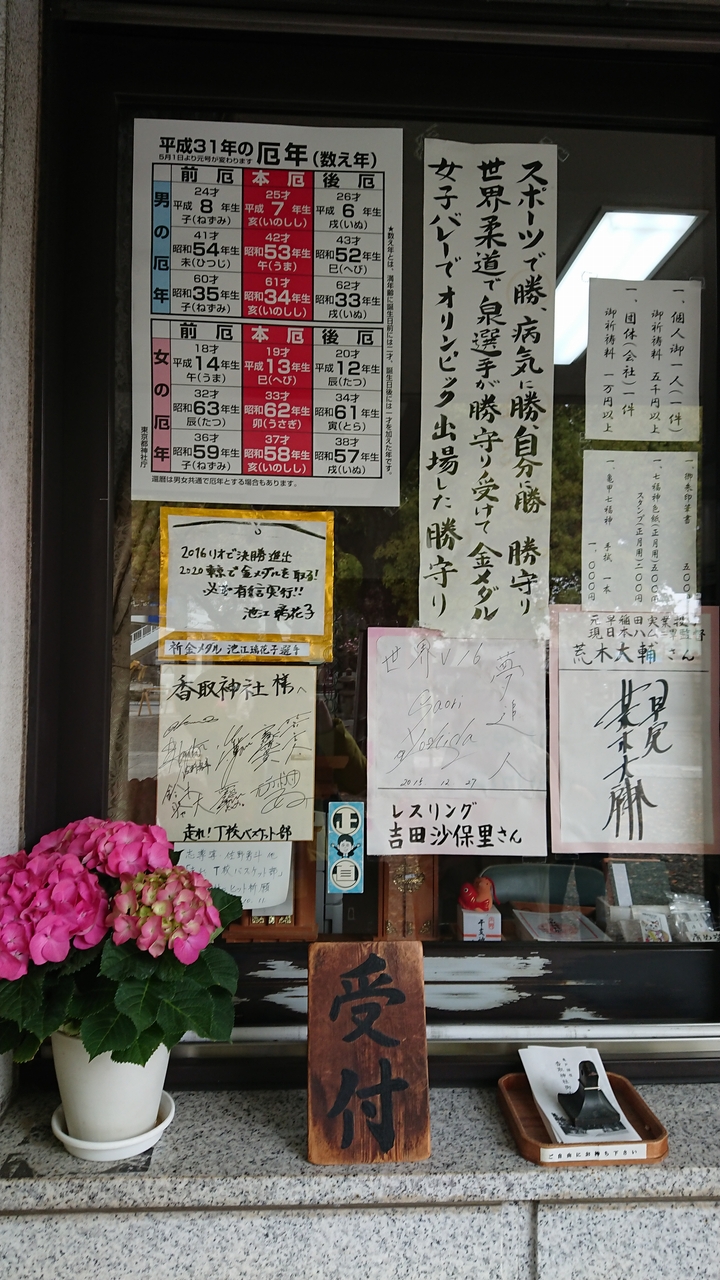 平成31年の厄年(数え年)
5月1日より元号が変わります
前厄 本厄 後厄
男の厄年
24才 25才 26才
平成8年生 平成7年生 平成6年生
子(ねずみ) 亥(いのしし) 戌(いぬ)
41才 42才 43才
昭和54年生 昭和53年生 昭和52年生
未(ひつじ) 午(うま) 巳(へび)
60才 61才 62才
昭和35年生 昭和34年生 昭和33年生
子(ねずみ) 亥(いのしし) 戌(いぬ)
前厄 本厄 後厄
女の厄年
18才 19才 20才
平成14年生 平成13年生 平成12年生
午(うま) 巳(へび) 辰(たつ)
32才 33才 34才
昭和63年生 昭和62年生 昭和61年生
辰(たつ) 卯(うさぎ) 寅(とら)
36才 37才 38才
昭和59年生 昭和58年生 昭和57年生
子(ねずみ) 亥(いのしし) 戌(いぬ)
還暦は男女共通で厄年とする場合もあります。
★数え年とは、満年齢に誕生日前には二才、誕生日後には一才を加えた年です。
東京都神社庁
スポーツで勝、病気に勝、自分に勝 勝守り
世界柔道で泉選手が勝守り受けて金メダル
女子バレーでオリンピック出場した勝守り
一、個人御一人(一件)
御祈祷料 五千円以上
一、団体(会社)一件
御祈祷料 一万円以上
一、御朱印葉書 五〇〇円
一、七福神色紙(正月用)五〇〇円
スタンプ(正月用)二〇〇円
一、亀甲七福神 手拭 一本
一、〇〇〇円
2016リオで決勝進出
2020東京で金メダルを取る!
必ず有言実行!!
池江璃花子
祈金メダル 池江璃花子選手
香取神社様へ
走れ!T校バスケット部
世界V16
夢追人
Saori
Yoshida
2015 12 27
レスリング
吉田沙保里さん
荒木大輔さん
荒木大輔
受付
ご自由にお持ち下さい